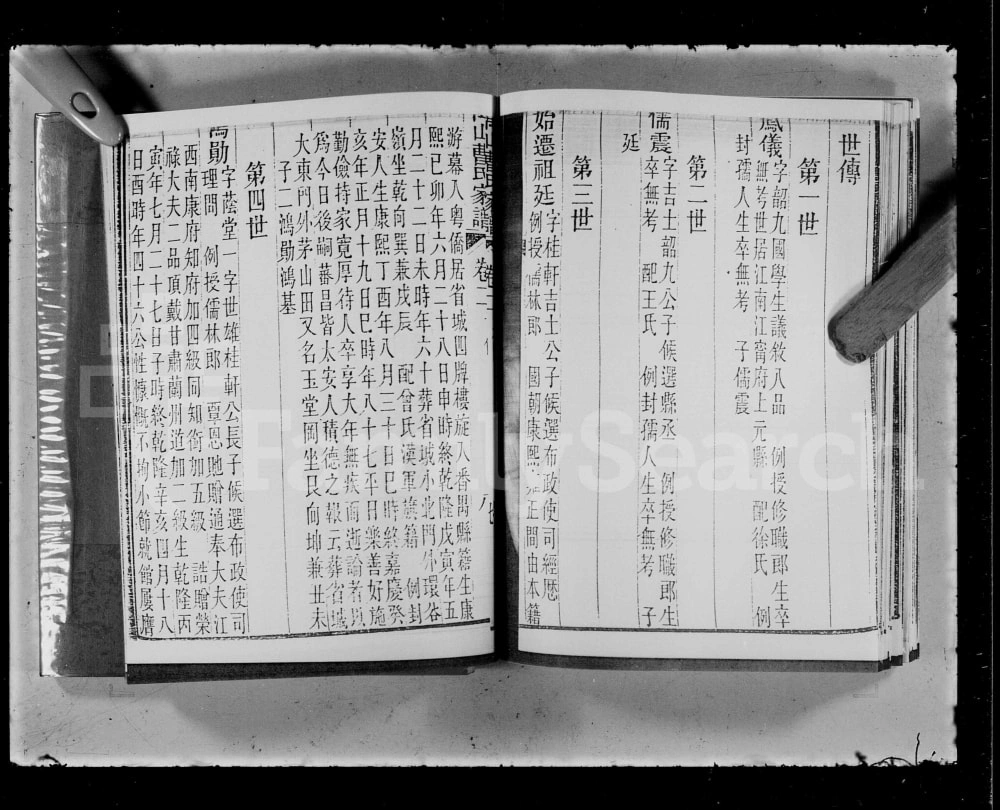 世傳
第一世
鳳儀 字韶九國學生議敘八品 例授修職郎生卒
無考世居江南江甯府上元縣 配徐氏 例
封孺人生卒無考 子儒震
第二世
儒震 字吉士韶九公子候選縣丞 例授修職郎生
卒無考 配王氏 例封孺人生卒無考 子
廷
第三世
始遷祖廷 字桂軒吉士公子候選布政使司經歷
例授儒林郎 國朝康熙雍正間由本籍
曹氏家譜 卷二
游幕入粵僑居省城四牌樓旋入番禺縣籍生康
熙己卯年六月二十八日申時終乾隆戊寅年五
月二十二日未時年六十葬省城小北門外環谷
嶺坐乾向巽兼戌辰 配曾氏漢軍旗籍 例封
安人生康熙丁酉年八月三十日巳時終嘉慶癸
亥年正月十九日巳時年八十七平日樂善好施
勤儉持家寬厚待人卒享大年無疾而逝論者以
為今日後嗣蕃昌皆太安人積德之報云葬省城
大東門外茅山田又名玉堂岡坐艮向坤兼丑未
子二鴻勛鴻基
第四世
鴻勛 字蔭堂一字世雄桂軒公長子候選布政使司
理問 例授儒林郎 覃恩貤贈通奉大夫江
西南康府知府加四級同知銜加五級 誥贈榮
祿大夫二品頂戴甘肅蘭州道加二級生乾隆丙
寅年七月二十七日子時終乾隆辛亥四月十八
日酉時年四十六公性慷慨不拘小節就館屢膺
FamilySearch